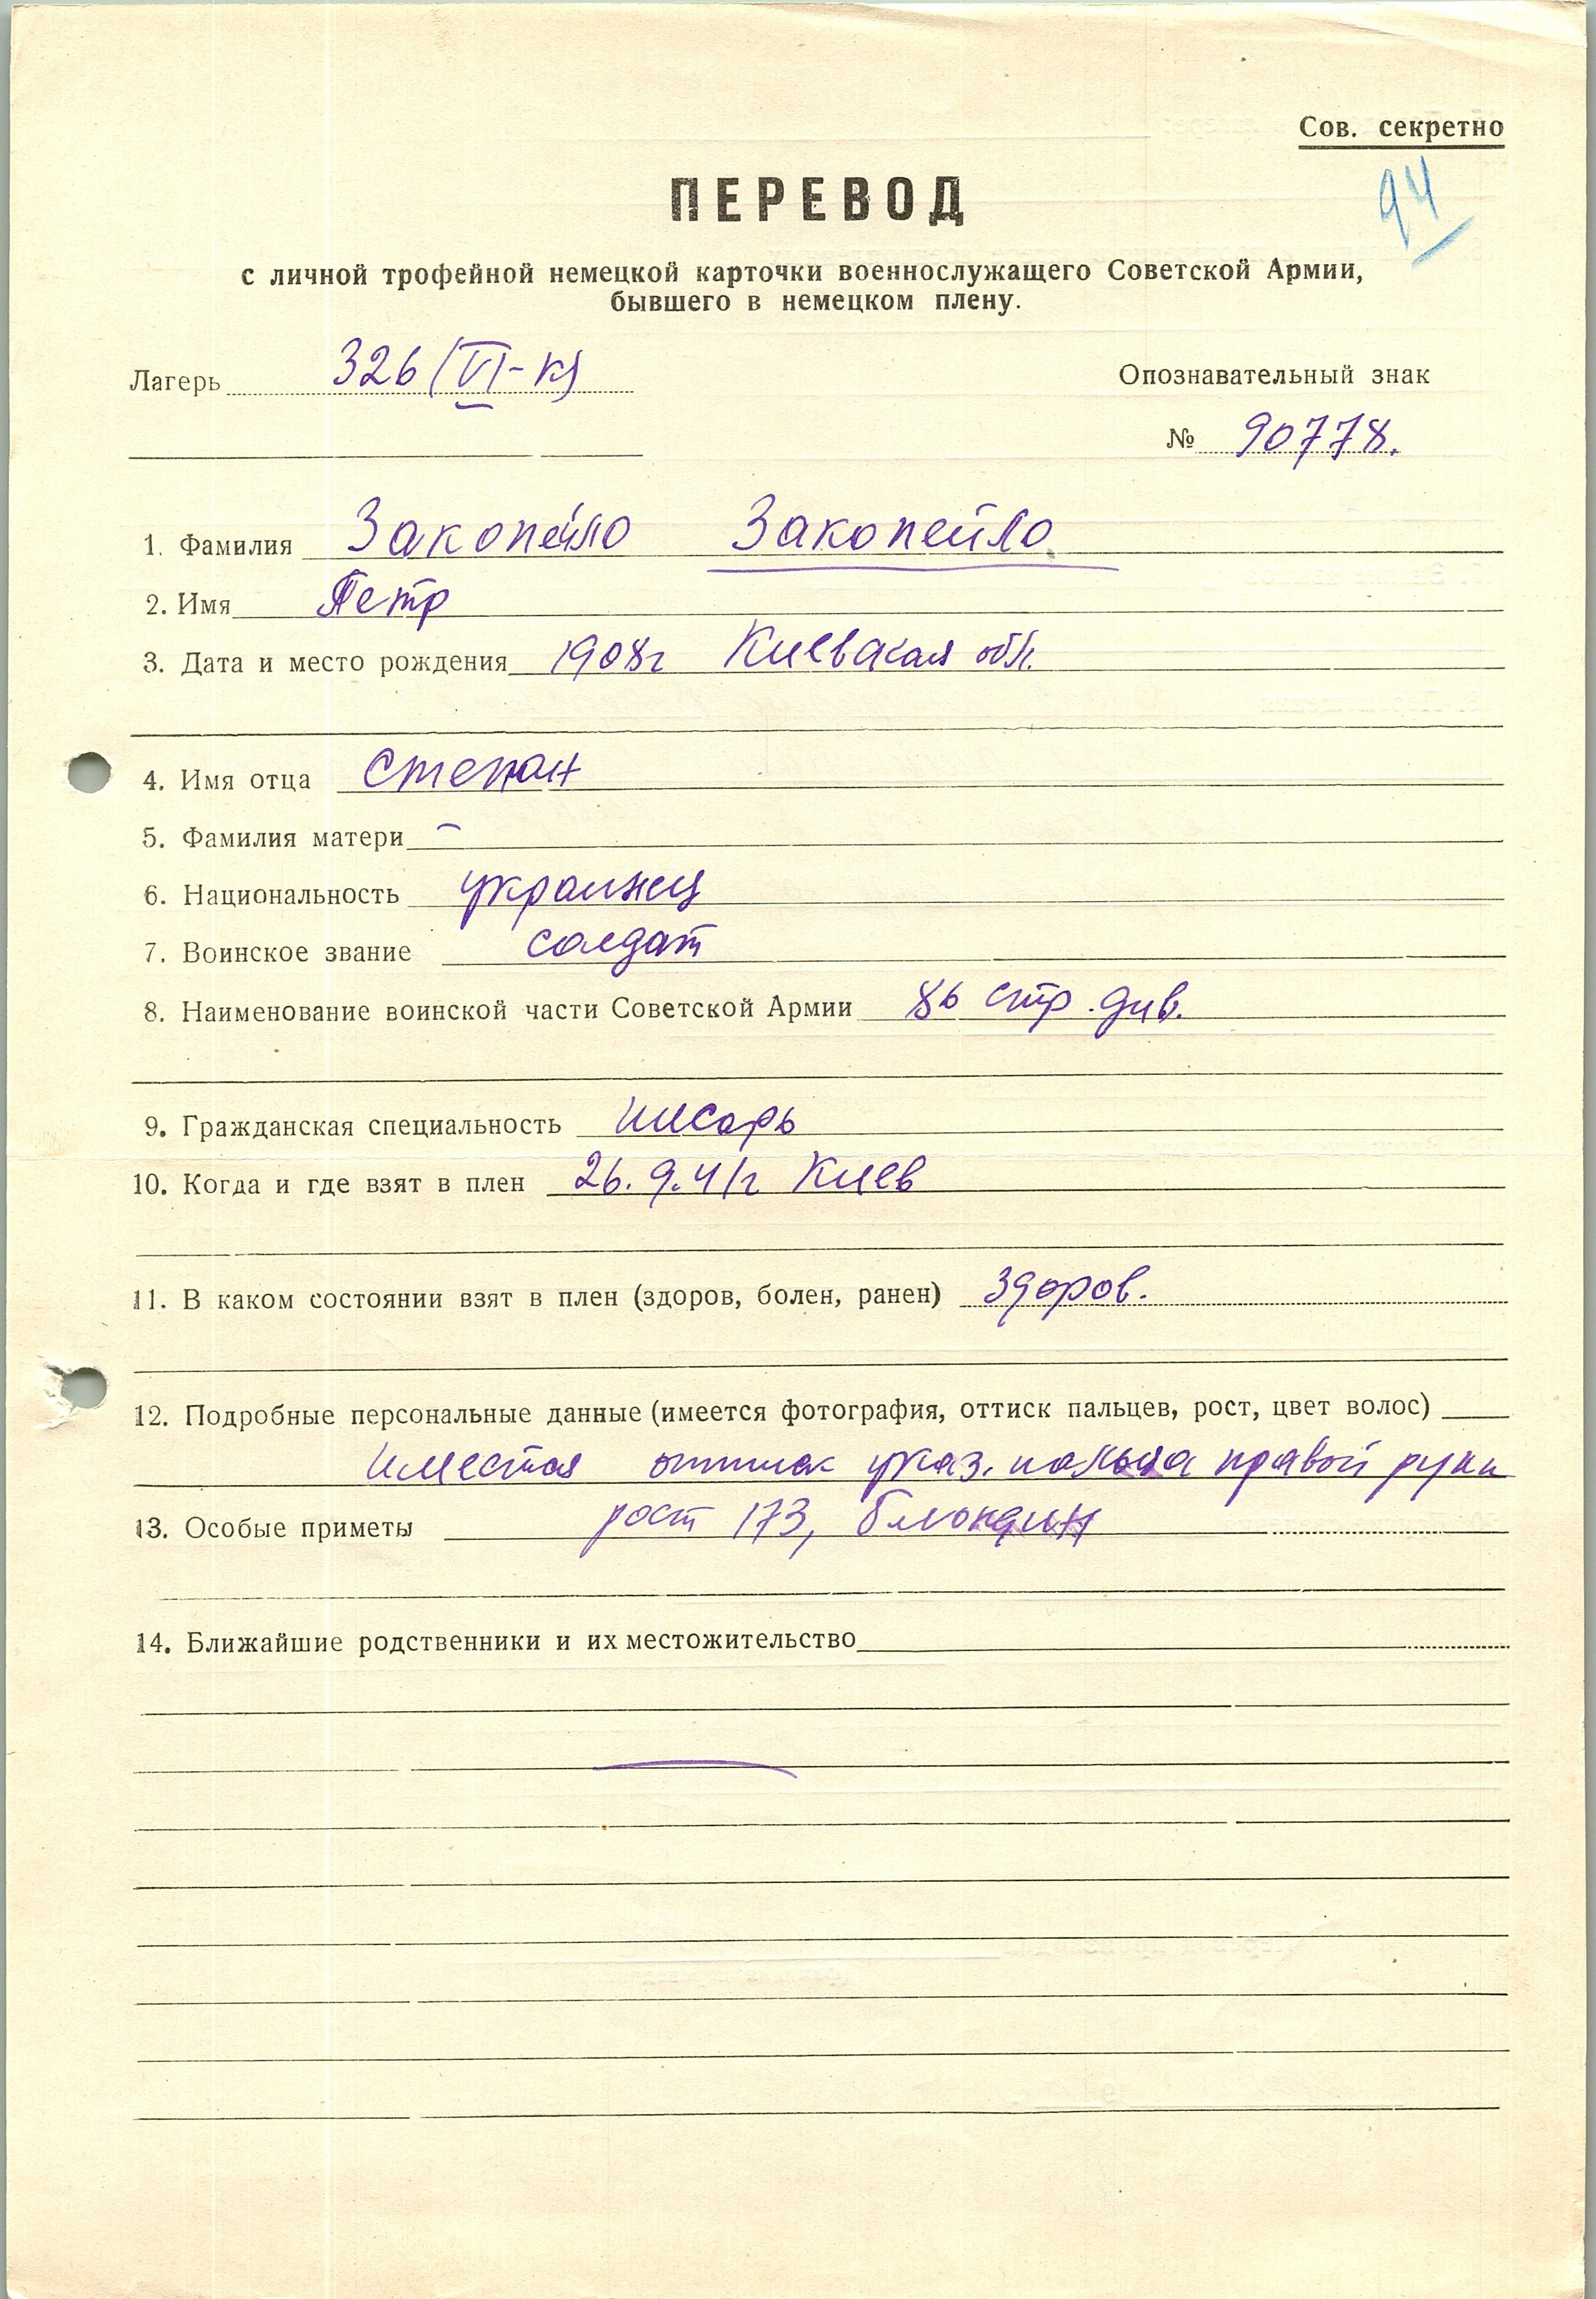 Сов. секретно
94
ПЕРЕВОД
с личной трофейной немецкой карточки военнослужащего Советской Армии,
бывшего в немецком плену.
Лагерь 326 (VI-К)
Опознавательный знак
№ 90778.
1. Фамилия Закопейло Закопейло
2. Имя Петр
3. Дата и место рождения 1908г Киевская обл.
4. Имя отца Степан
5. Фамилия матери –
6. Национальность украинец
7. Воинское звание солдат
8. Наименование воинской части Советской Армии 86 стр. див.
9. Гражданская специальность писарь
10. Когда и где взят в плен 26.9.41г Киев
11. В каком состоянии взят в плен (здоров, болен, ранен) здоров.
12. Подробные персональные данные (имеется фотография, оттиск пальцев, рост, цвет волос)
Имеется оттиск указ. пальца правой руки
13. Особые приметы рост 173, блондин
14. Ближайшие родственники и их местожительство